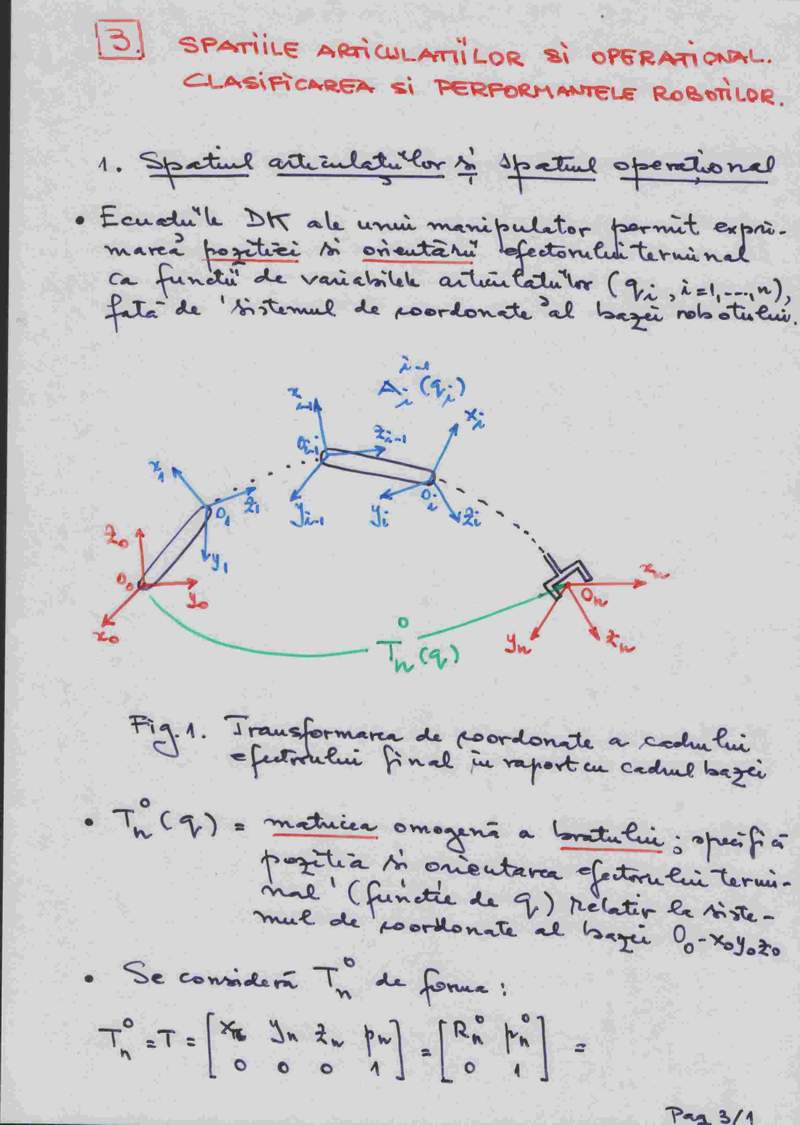 3.
SPATIILE ARTICULATIILOR SI OPERATIONAL.
CLASIFICAREA SI PERFORMANTELE ROBOTILOR.
1. Spatiul articulațiilor și spatiul operațional
• Ecuatiile DK ale unui manipulator permit expri-
marea poziției si orientării efectorului terminal
ca functii de variabilele articulatiilor (qi, i=1,...,n),
fată de sistemul de coordonate al bazei robotului.
i-1
Ai (qi)
xi-1
xi
zi-1
Oi-1
x1
z1
O1
yi-1
yi
Oi
zi
z0
y1
O0
y0
x0
xn
On
yn
zn
0
Tn (q)
Fig.1. Transformarea de coordonate a cadrului
efectorului final în raport cu cadrul bazei
• Tn0 (q) = matricea omogenă a bratului; specifică
pozitia si orientarea efectorului termi-
nal (functie de q) relativ la siste-
mul de coordonate al bazei O0-x0y0z0
• Se consideră Tn0 de forma:
Tn0 = T = [xn yn zn pn] = [Rn0 pn0] =
0 0 0 1 0 1
Pag 3/1